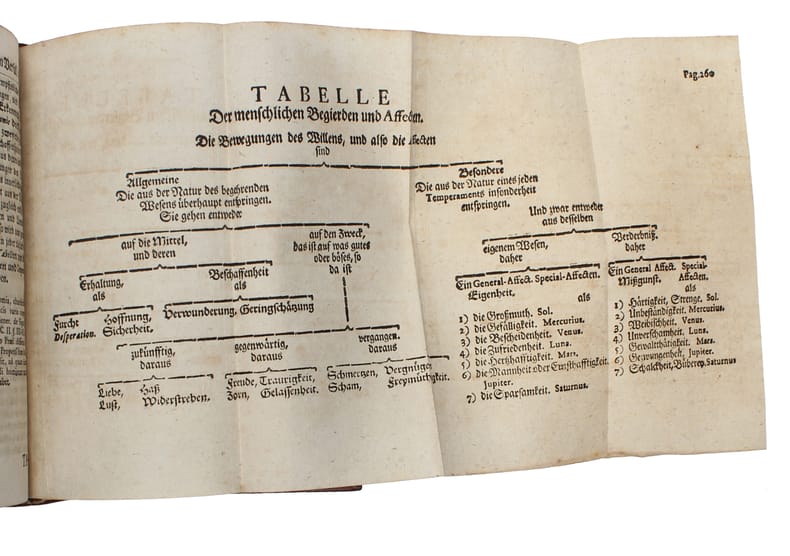 Pag. 260
TABELLE
Der menschlichen Begierden und Affecten.
Die Bewegungen des Willens, und also die Affecten
sind
Allgemeine
Die aus der Natur des begehrenden
Wesens überhaupt entspringen.
Sie gehen entweder
auf die Mittel,
und deren
Erhaltung,
als
Furcht
Desperation.
Hoffnung,
Sicherheit.
Beschaffenheit
als
Verwunderung, Geringschätzung
auf den Zweck,
das ist auf was gutes
oder böses, so
da ist
zukünfftig,
daraus
Liebe, Haß
Lust, Widerstreben.
gegenwärtig,
daraus
Freude, Traurigkeit,
Zorn, Gelassenheit.
vergangen.
daraus
Schmertzen, Vergnügen
Scham, Freymüthigkeit.
Besondere
Die aus der Natur eines jeden
Temperaments insonderheit
entspringen.
Und zwar entweder
aus desselben
eigenem Wesen,
daher
Ein General-Affect. Special-Affecten.
Eigenheit.
als
1) die Großmuth. Sol.
2) die Gefälligkeit. Mercurius.
3) die Bescheidenheit. Venus.
4) die Zufriedenheit. Luna.
5) die Hertzhafftigkeit. Mars.
6) die Mannheit oder Ernsthafftigkeit.
Jupiter.
7) die Sparsamkeit. Saturnus.
Verderbniß.
daher
Ein General Affect. Special-
Mißgunst. Affecten.
als
1) Härtigkeit, Strenge. Sol.
2) Unbeständigkeit. Mercurius.
3) Weibischheit. Venus.
4) Unverschamheit. Luna.
5) Gewaltthätigkeit. Mars.
6) Gezwungenheit. Jupiter.
7) Schalckheit, Büberey. Saturnus